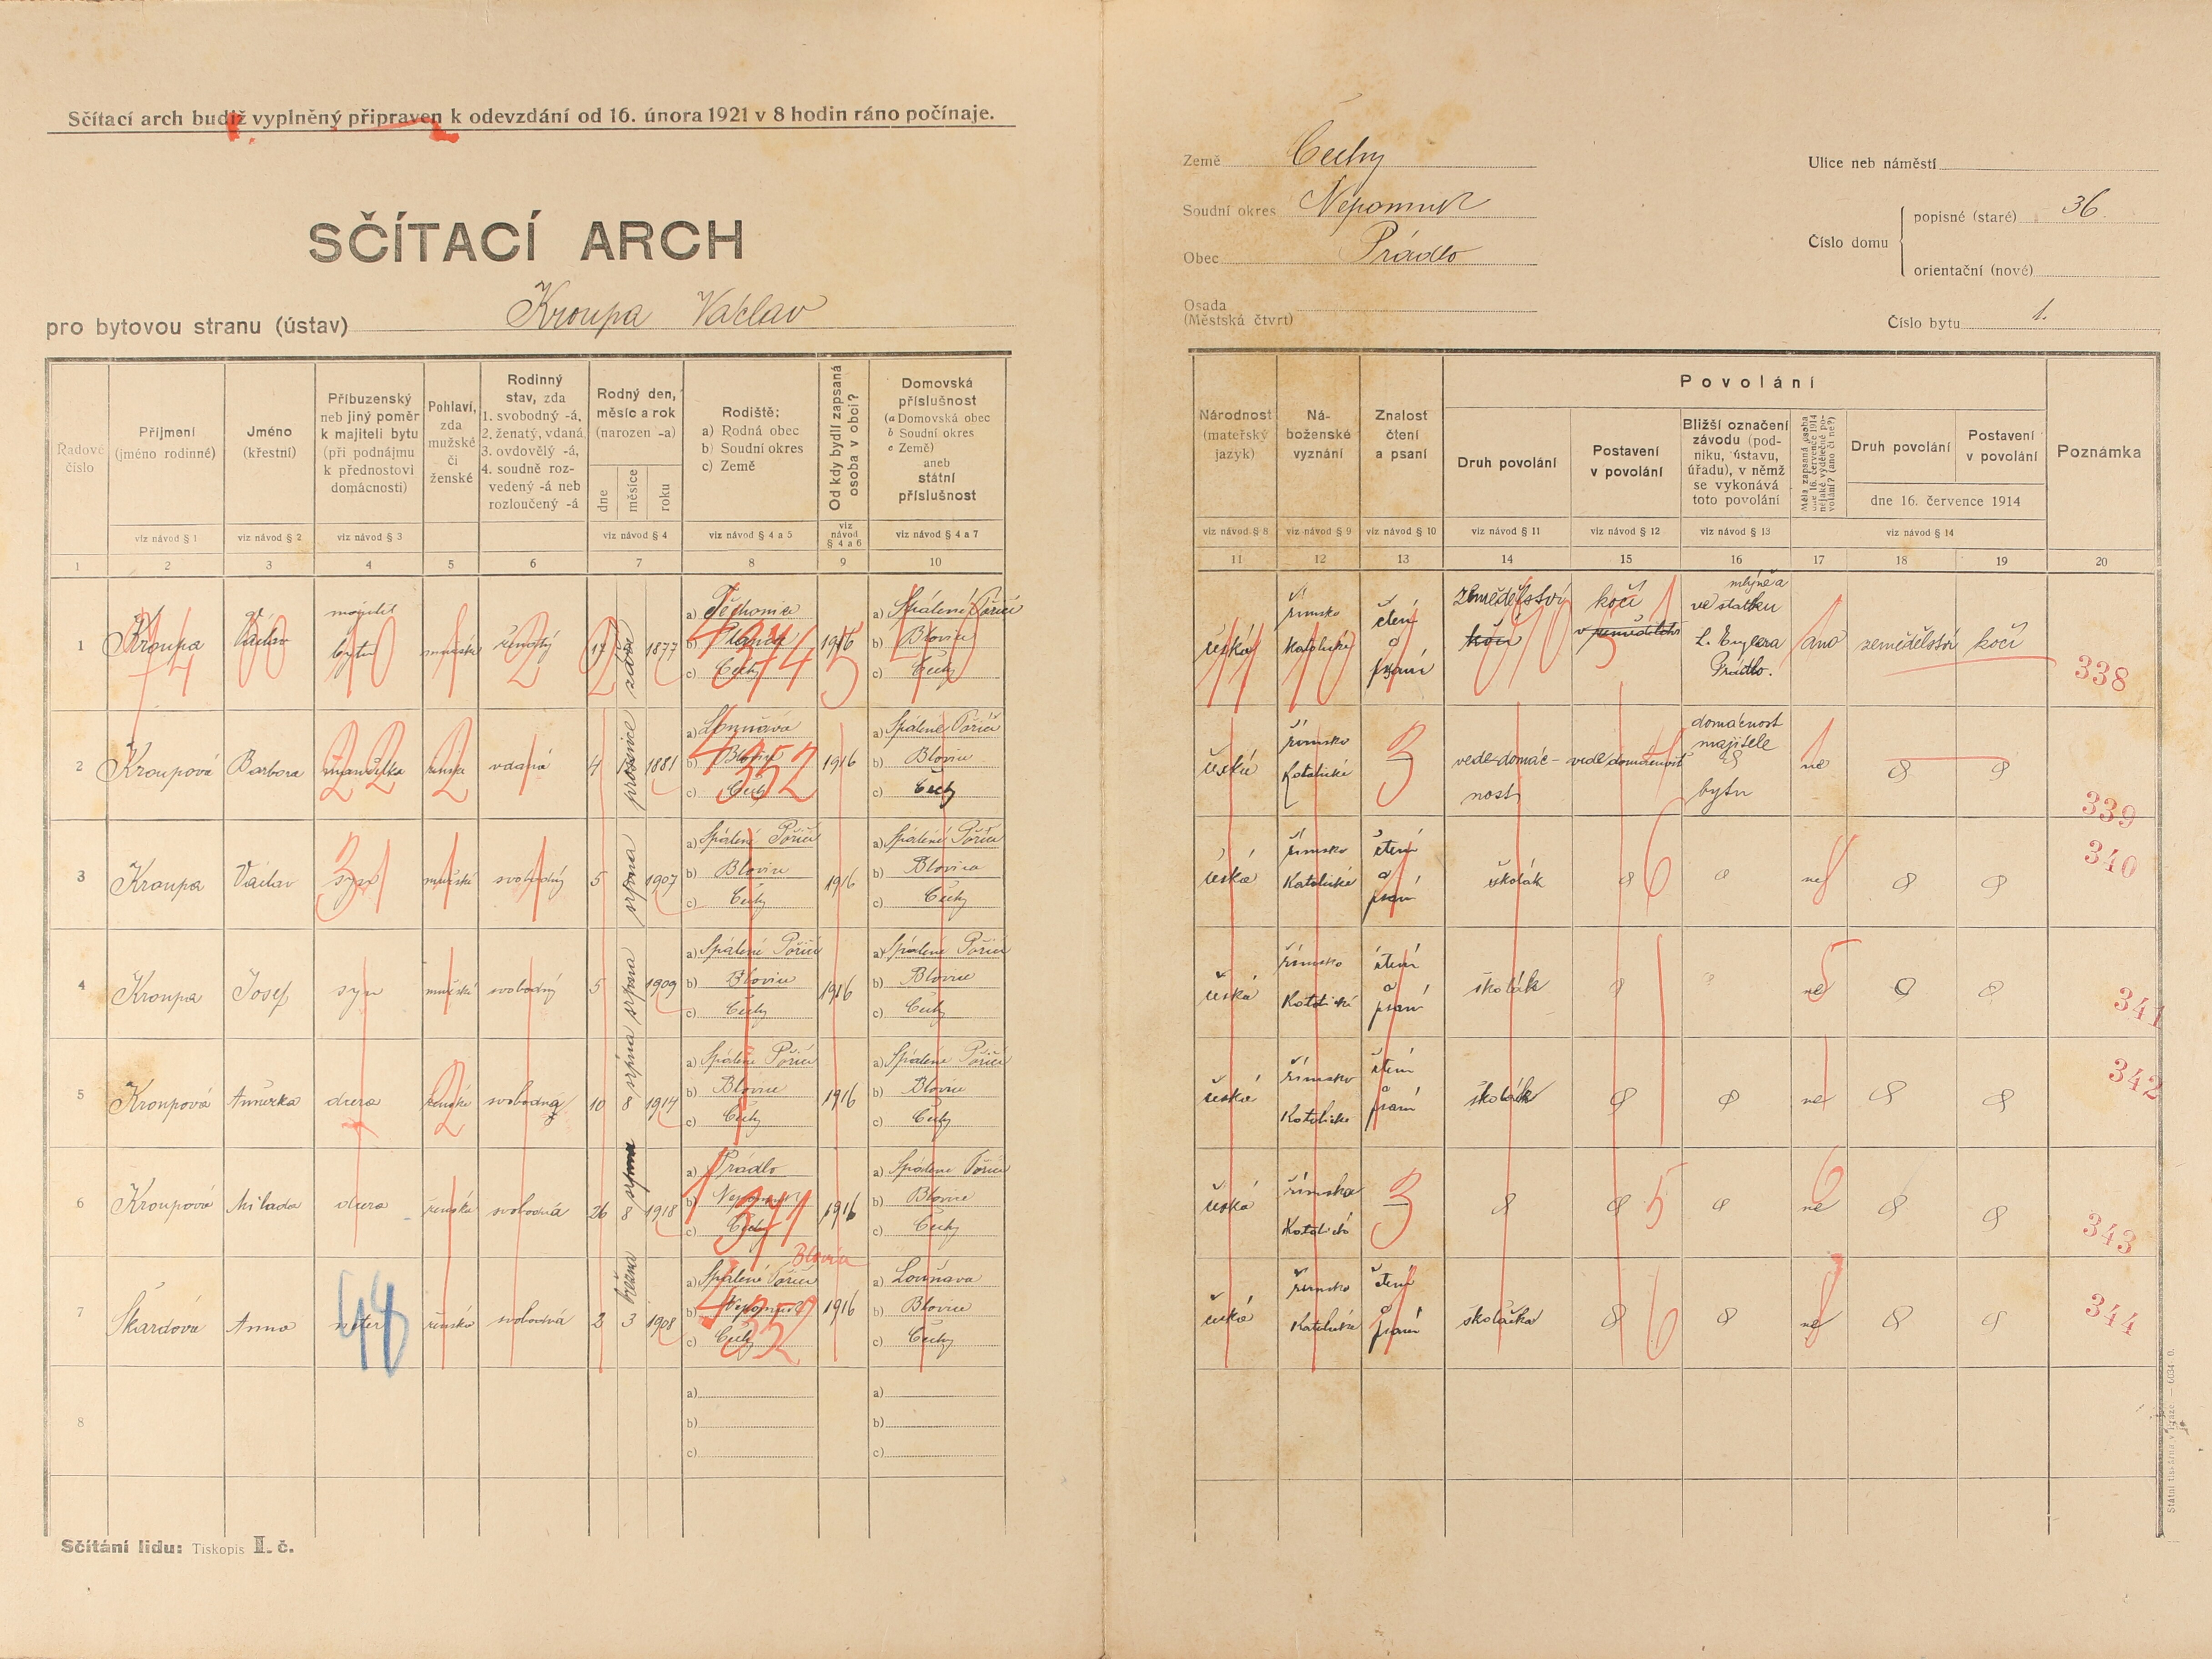 Sčítací arch budiž vyplněný připraven k odevzdání od 16. února 1921 v 8 hodin ráno počínaje.
SČÍTACÍ ARCH
pro bytovou stranu (ústav) Kroupa Václav
Země Čechy
Soudní okres Nepomuk
Obec Prádlo
Osada
(Městská čtvrt)
Ulice neb náměstí
Číslo domu
popisné (staré) 36.
orientační (nové)
Číslo bytu 1.
Řadové číslo
Příjmení (jméno rodinné)
Jméno (křestní)
Příbuzenský neb jiný poměr k majiteli bytu (při podnájmu k přednostovi domácnosti)
Pohlaví, zda mužské či ženské
Rodinný stav, zda 1. svobodný -á, 2. ženatý, vdaná, 3. ovdovělý -á, 4. soudně rozvedený -á neb rozloučený -á
Rodný den, měsíc a rok (narozen -a)
dne
měsíce
roku
Rodiště:
a) Rodná obec
b) Soudní okres
c) Země
Od kdy bydlí zapsaná osoba v obci?
Domovská příslušnost
(a Domovská obec
b Soudní okres
c Země)
aneb státní příslušnost
Národnost (mateřský jazyk)
Náboženské vyznání
Znalost čtení a psaní
Povolání
Druh povolání
Postavení v povolání
Bližší označení závodu (podniku, ústavu, úřadu), v němž se vykonává toto povolání
Měla zapsaná osoba dne 16. července 1914 nějaké výdělečné povolání? (ano či ne?)
Druh povolání
Postavení v povolání
dne 16. července 1914
Poznámka
viz návod § 1
viz návod § 2
viz návod § 3
viz návod § 4
viz návod § 4 a 5
viz návod § 4 a 6
viz návod § 4 a 7
viz návod § 8
viz návod § 9
viz návod § 10
viz návod § 11
viz návod § 12
viz návod § 13
viz návod § 14
1 2 3 4 5 6 7 8 9 10 11 12 13 14 15 16 17 18 19 20
1 Kroupa Václav majitel bytu mužské ženatý 17 1877
a) Těchonice
b) Plánice
c) Čechy
1916
a) Spálené Poříčí
b) Blovice
c) Čechy
česká římsko katolické čtení a psaní zemědělství kočí kočí v zemědělství mlýně a ve statku Prádlo. ano zemědělství kočí 338
2 Kroupová Barbora manželka ženské vdaná 4 prosince 1881
b) Blovice
c) Čechy
1916
a) Spálené Poříčí
b) Blovice
c) Čechy
česká římsko katolické 3 vede domácnost vede domácnost domácnost majitele bytu ne 339
3 Kroupa Václav syn mužské svobodný 5 srpna 1907
a) Spálené Poříčí
b) Blovice
c) Čechy
1916
a) Spálené Poříčí
b) Blovice
c) Čechy
česká římsko katolické čtení a psaní školák ne 340
4 Kroupa Josef syn mužské svobodný 5 srpna 1909
a) Spálené Poříčí
b) Blovice
c) Čechy
1916
a) Spálené Poříčí
b) Blovice
c) Čechy
česká římsko katolické čtení a psaní školák ne 341
5 Kroupová dcera ženské svobodná 10 8 srpna 1914
a) Spálené Poříčí
b) Blovice
c) Čechy
1916
a) Spálené Poříčí
b) Blovice
c) Čechy
česká římsko katolické čtení a psaní školák ne 342
6 Kroupová Milada dcera ženská svobodná 26 8 srpna 1918
a) Prádlo
b) Nepomuk
c) Čechy
1916
a) Spálené Poříčí
b) Blovice
c) Čechy
česká římska katolická 3 ne 343
7 Škardová Anna neteř ženská svobodná 2 3 března 1908
Blovice
a) Spálené Poříčí
b) Nepomuk
c) Čechy
1916
a) Louňava
b) Blovice
c) Čechy
česká římsko katolické čtení a psaní školačka ne 344
8
a)
b)
c)
a)
b)
c)
Sčítání lidu: Tiskopis II. č.
Státní tiskárna v Praze. — 6034-0.